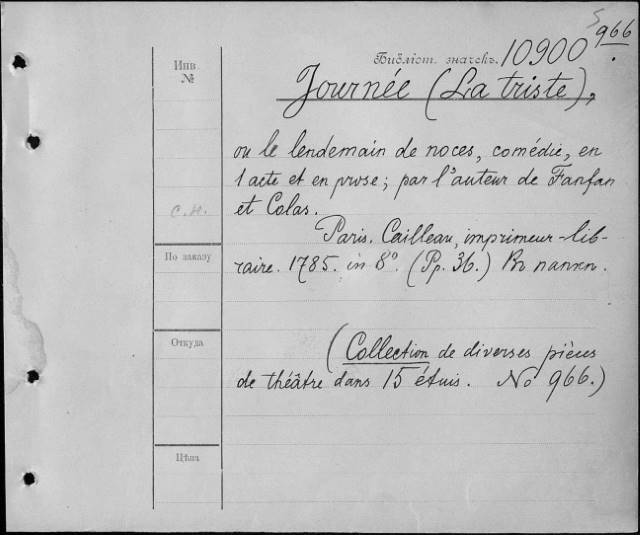 5
966
Библіот. значекъ. 10900
Инв.
№
Journée (La triste),
ou le lendemain de noces, comédie, en
1 acte et en prose; par l'auteur de Fanfan
С.Н.
et Colas.
Paris. Cailleau, imprimeur-lib-
По заказу
raire. 1785. in 8º. (Pp. 36.) Въ папкѣ.
Откуда
(Collection de diverses pièces
de théâtre dans 15 étuis. No 966.)
Цѣна